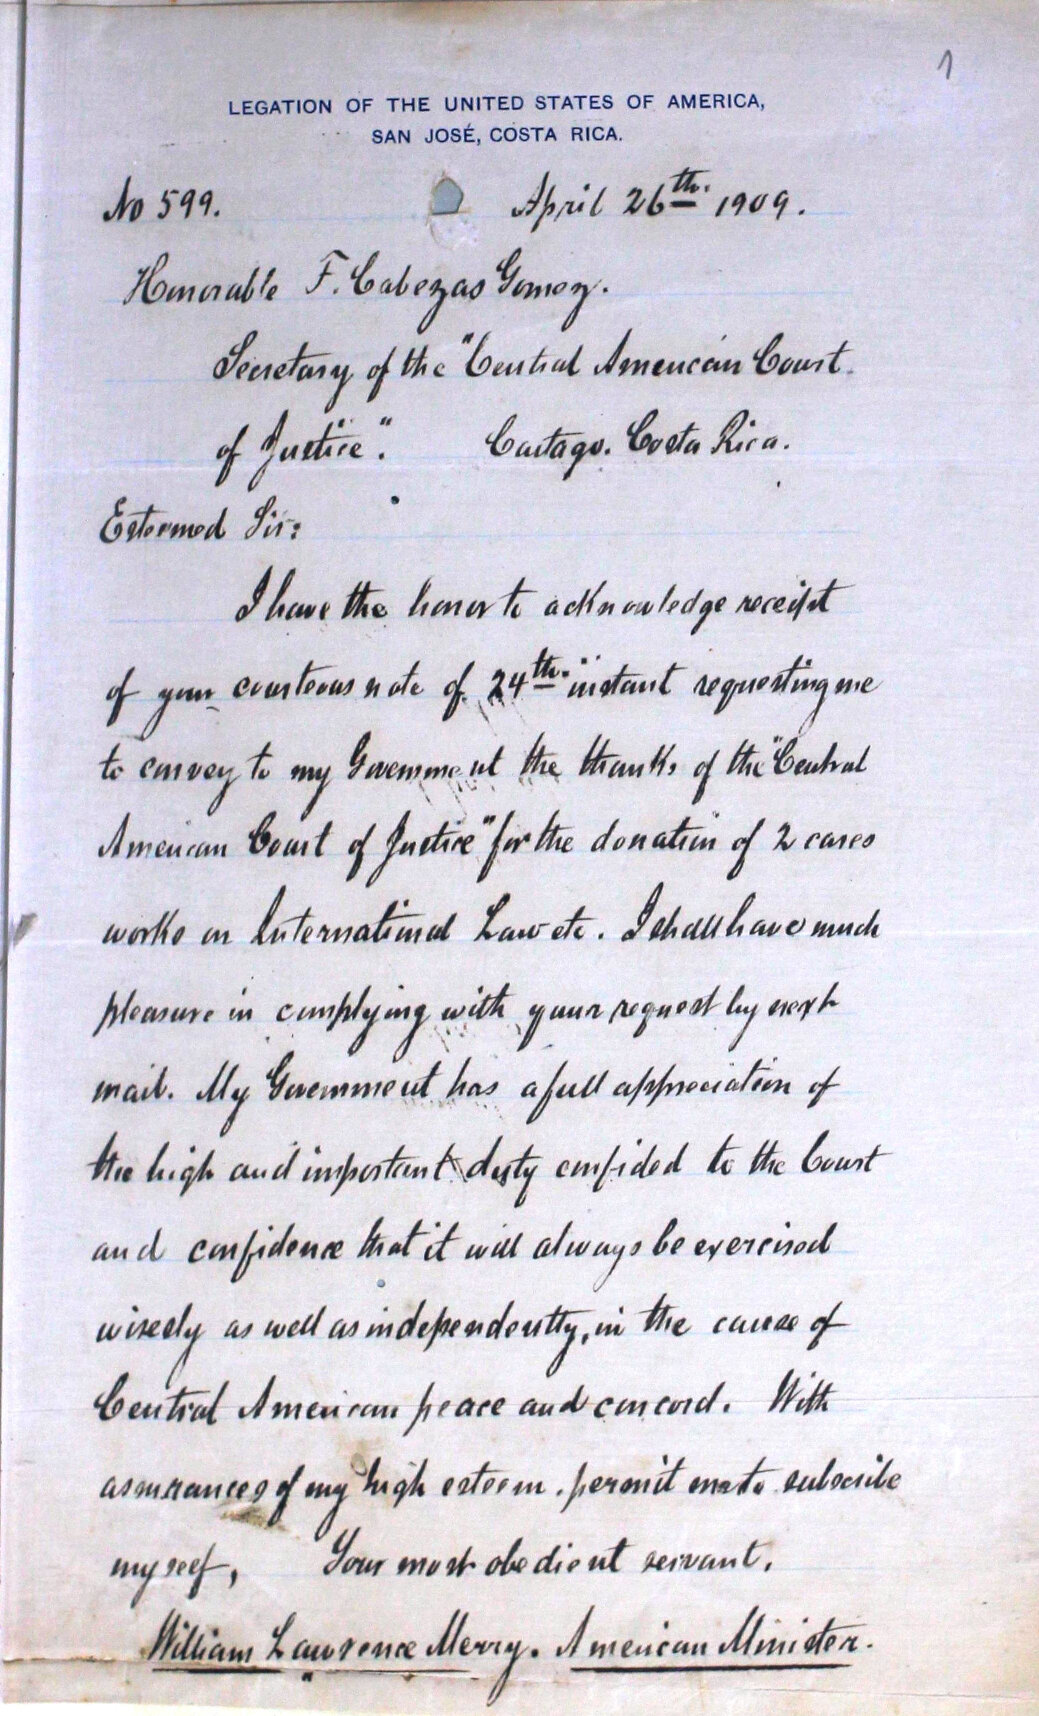 1
LEGATION OF THE UNITED STATES OF AMERICA,
SAN JOSÉ, COSTA RICA.
No 599. April 26th. 1909.
Honorable F. Cabezas Gomez.
Secretary of the "Central American Court
of Justice". Cartago. Costa Rica.
Esteemed Sir:
I have the honor to acknowledge receipt
of your courteous note of 24th. instant requesting me
to convey to my Government the thanks of the "Central
American Court of Justice" for the donation of 2 cases
works on International Law etc. I shall have much
pleasure in complying with your request by next
mail. My Government has a full appreciation of
the high and important duty confided to the Court
and confidence that it will always be exercised
wisely as well as independently, in the cause of
Central American peace and concord. With
assurances of my high esteem, permit me to subscribe
myself, Your most obedient servant,
William Lawrence Merry. American Minister.